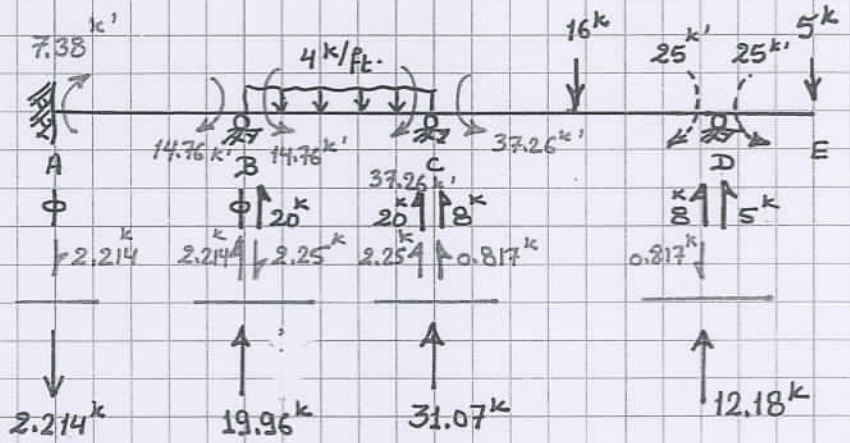 16ᵏ 5ᵏ
7.38ᵏ' 4ᵏ/ft. 25ᵏ' 25ᵏ'
14.76ᵏ' B 14.76ᵏ' C 37.26ᵏ' D E
A 37.26ᵏ'
20ᵏ 20ᵏ 8ᵏ 8ᵏ 5ᵏ
2.214ᵏ 2.214ᵏ 2.25ᵏ 2.25ᵏ 0.817ᵏ 0.817ᵏ
2.214ᵏ 19.96ᵏ 31.07ᵏ 12.18ᵏ